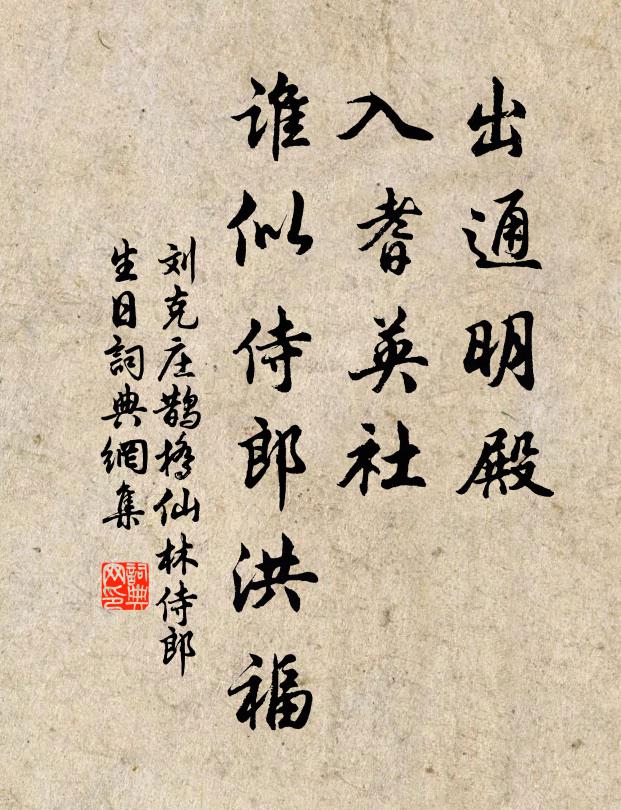 出通明殿
入耆英社
谁似侍郎洪福
刘克庄鹊橋仙林侍郎
生日詞典網集
詞典
网印